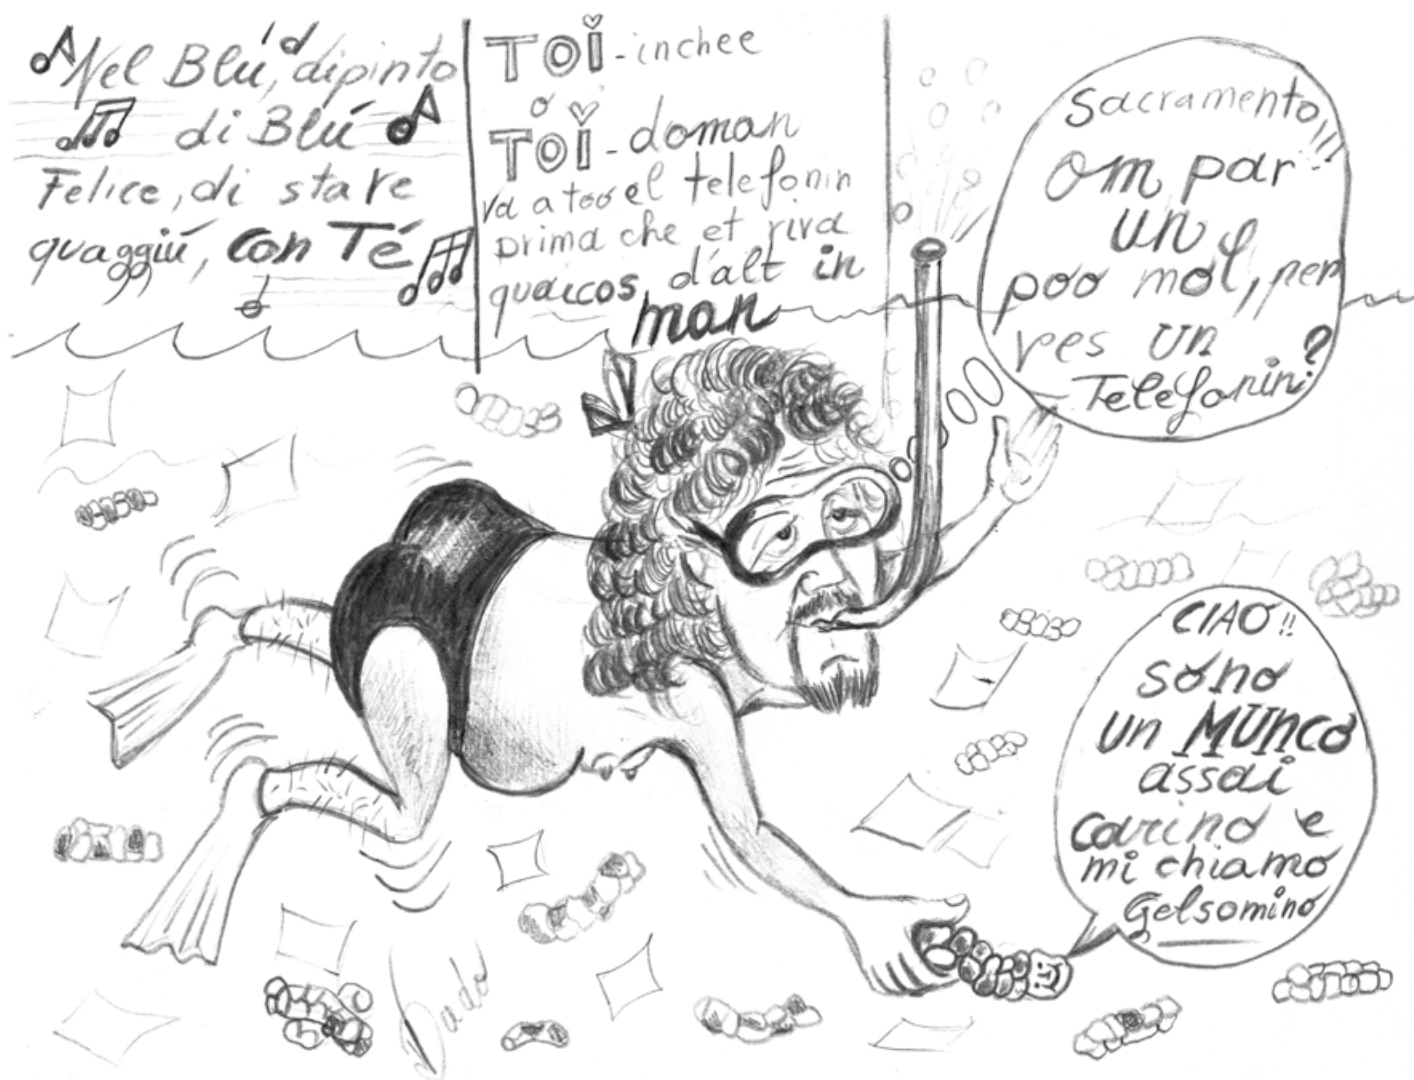 Nel Blú, dipinto
di Blú
Felice, di stare
quaggiú, con Té
TOI-inchee
o
TOI-doman
va a too el telefonin
prima che et riva
quaicos d'alt in
man
Sacramento!!!
om par
un
poo mol, per
ves un
Telefonin?
CIAO!!
sono
un MUNCO
assai
carino e
mi chiamo
Gelsomino
Dudo